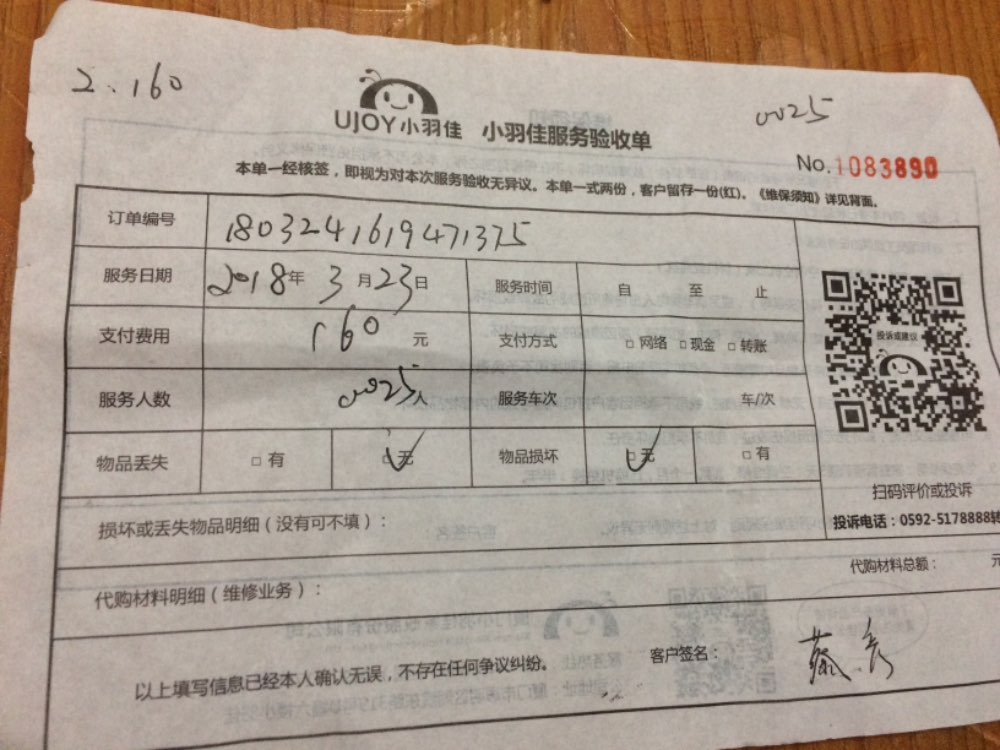 2.160
0025
UJOY小羽佳 小羽佳服务验收单
No.1083890
本单一经核签，即视为对本次服务验收无异议。本单一式两份，客户留存一份(红)。《维保须知》详见背面。
订单编号 1803241619471375
服务日期 2018年3月23日 服务时间 自 至 止
支付费用 160 元 支付方式 □网络 □现金 □转账
服务人数 0025人 服务车次 车/次
物品丢失 □有 □无 物品损坏 □无 □有
投诉或建议
扫码评价或投诉
投诉电话：0592-5178888转
损坏或丢失物品明细（没有可不填）：
代购材料明细（维修业务）： 代购材料总额： 元
以上填写信息已经本人确认无误，不存在任何争议纠纷。 客户签名：